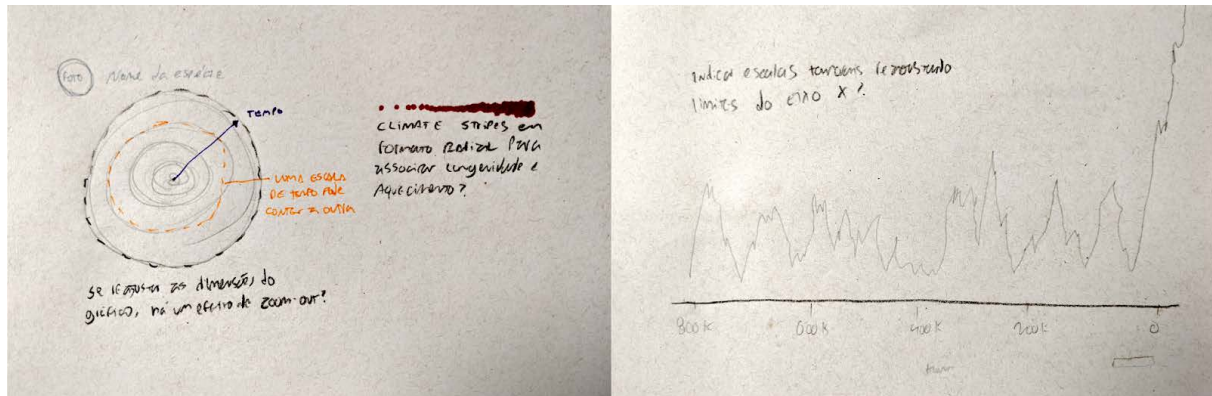 FOTO
Nome da espécie
TEMPO
UMA ESCALA
DE TEMPO PODE
CONTER A OUTRA
CLIMATE STRIPES em
FORMATO RADIAL PARA
ASSOCIAR LONGEVIDADE E
AQUECIMENTO?
SE REAJUSTA AS DIMENSÕES DO
GRÁFICO, HÁ UM EFEITO DE ZOOM-OUT?
INDICAR ESCALAS TAMBÉM REAJUSTANDO
LIMITES DO EIXO X?
800K
600K
400K
200K
0